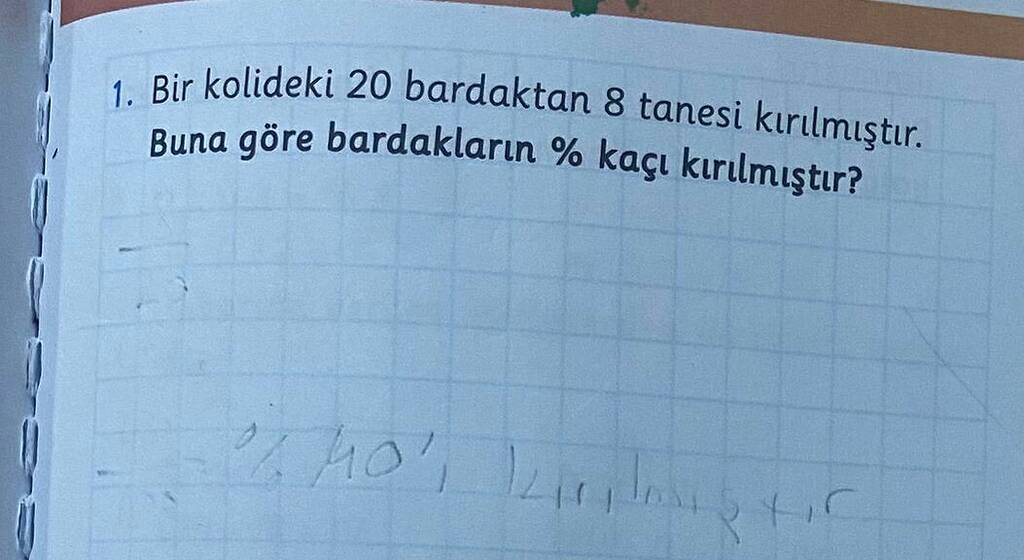 1. Bir kolideki 20 bardaktan 8 tanesi kırılmıştır.
Buna göre bardakların % kaçı kırılmıştır?
% 40'ı kırılmıştır